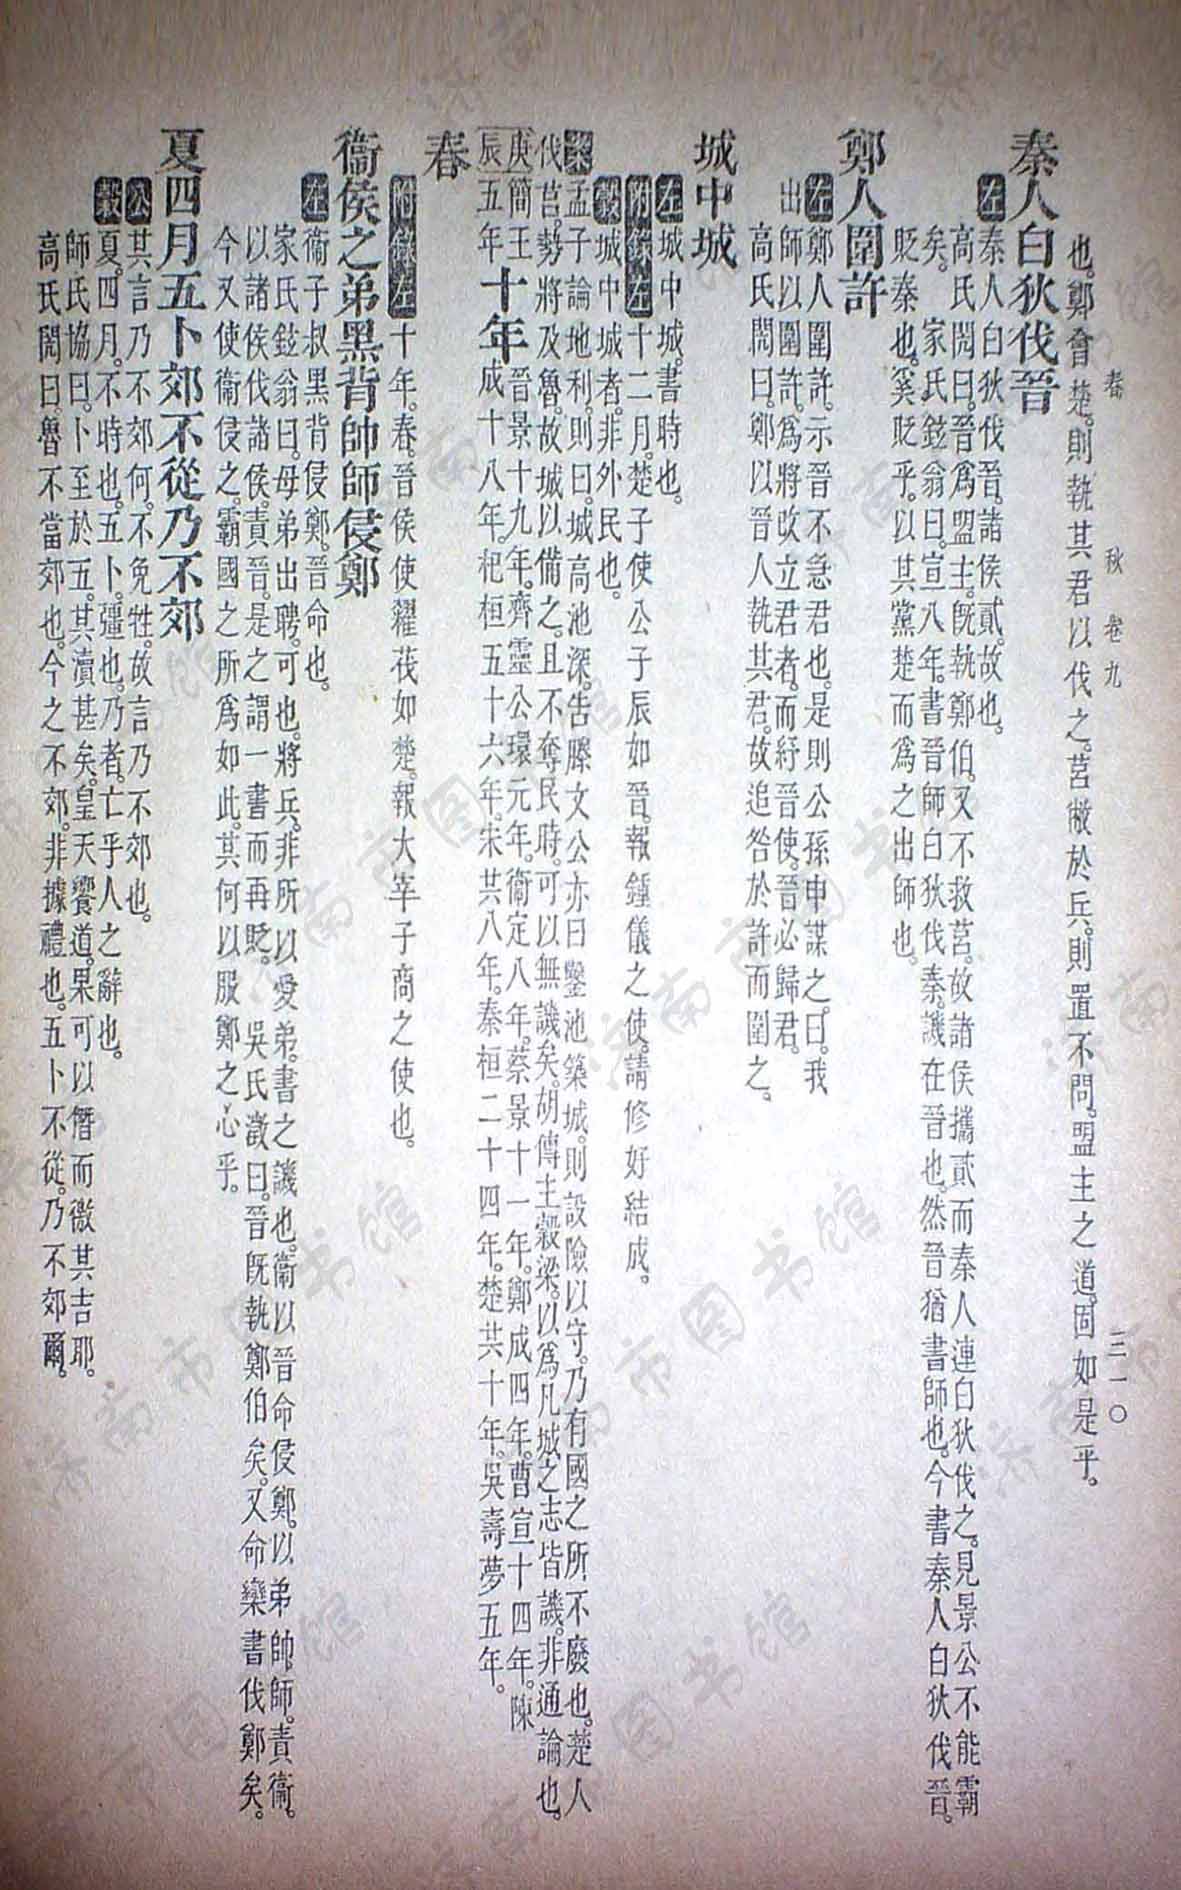 春秋 卷九 三一〇
也。鄭會楚。則執其君以伐之。莒敝於兵。則置不問。盟主之道。固如是乎。
秦人白狄伐晉
左秦人白狄伐晉。諸侯貳。故也。
高氏閌曰。晉爲盟主。旣執鄭伯。又不救莒。故諸侯攜貳而秦人連白狄伐之。見景公不能霸
矣。 家氏鉉翁曰。宣八年。書晉師白狄伐秦。譏在晉也。然晉猶書師也。今書秦人白狄伐晉。
貶秦也。奚貶乎。以其黨楚而爲之出師也。
鄭人圍許
左鄭人圍許。示晉不急君也。是則公孫申謀之。曰。我
出師以圍許。爲將改立君者。而紓晉使。晉必歸君。
高氏閌曰。鄭以晉人執其君。故追咎於許而圍之。
城中城
左城中城。書時也。
附錄左十二月。楚子使公子辰如晉。報鍾儀之使。請修好結成。
穀城中城者。非外民也。
案孟子論地利。則曰。城高池深。吿滕文公亦曰鑿池築城。則設險以守。乃有國之所不廢也。楚人
伐莒。勢將及魯。故城以備之。且不奪民時。可以無譏矣。胡傳主穀梁。以爲凡城之志皆譏。非通論也。
庚辰 簡王五年 十年 晉景十九年。齊靈公環元年。衞定八年。蔡景十一年。鄭成四年。曹宣十四年。陳
成十八年。杞桓五十六年。宋共八年。秦桓二十四年。楚共十年。吳壽夢五年。
春
附錄左十年。春。晉侯使糴茷如楚。報大宰子商之使也。
衞侯之弟黑背帥師侵鄭
左衞子叔黑背侵鄭。晉命也。
家氏鉉翁曰。母弟出聘。可也。將兵。非所以愛弟。書之譏也。衞以晉命侵鄭。以弟帥師。責衞。
以諸侯伐諸侯。責晉。是之謂一書而再貶。 吳氏澂曰。晉旣執鄭伯矣。又命欒書伐鄭矣。
今又使衞侵之。霸國之所爲如此。其何以服鄭之心乎。
夏四月五卜郊不從乃不郊
公其言乃不郊何。不免牲。故言乃不郊也。
穀夏。四月。不時也。五卜。彊也。乃者。亡乎人之辭也。
師氏協曰。卜至於五。其瀆甚矣。皇天饗道。果可以僭而徼其吉耶。
高氏閌曰。魯不當郊也。今之不郊。非據禮也。五卜不從。乃不郊爾。